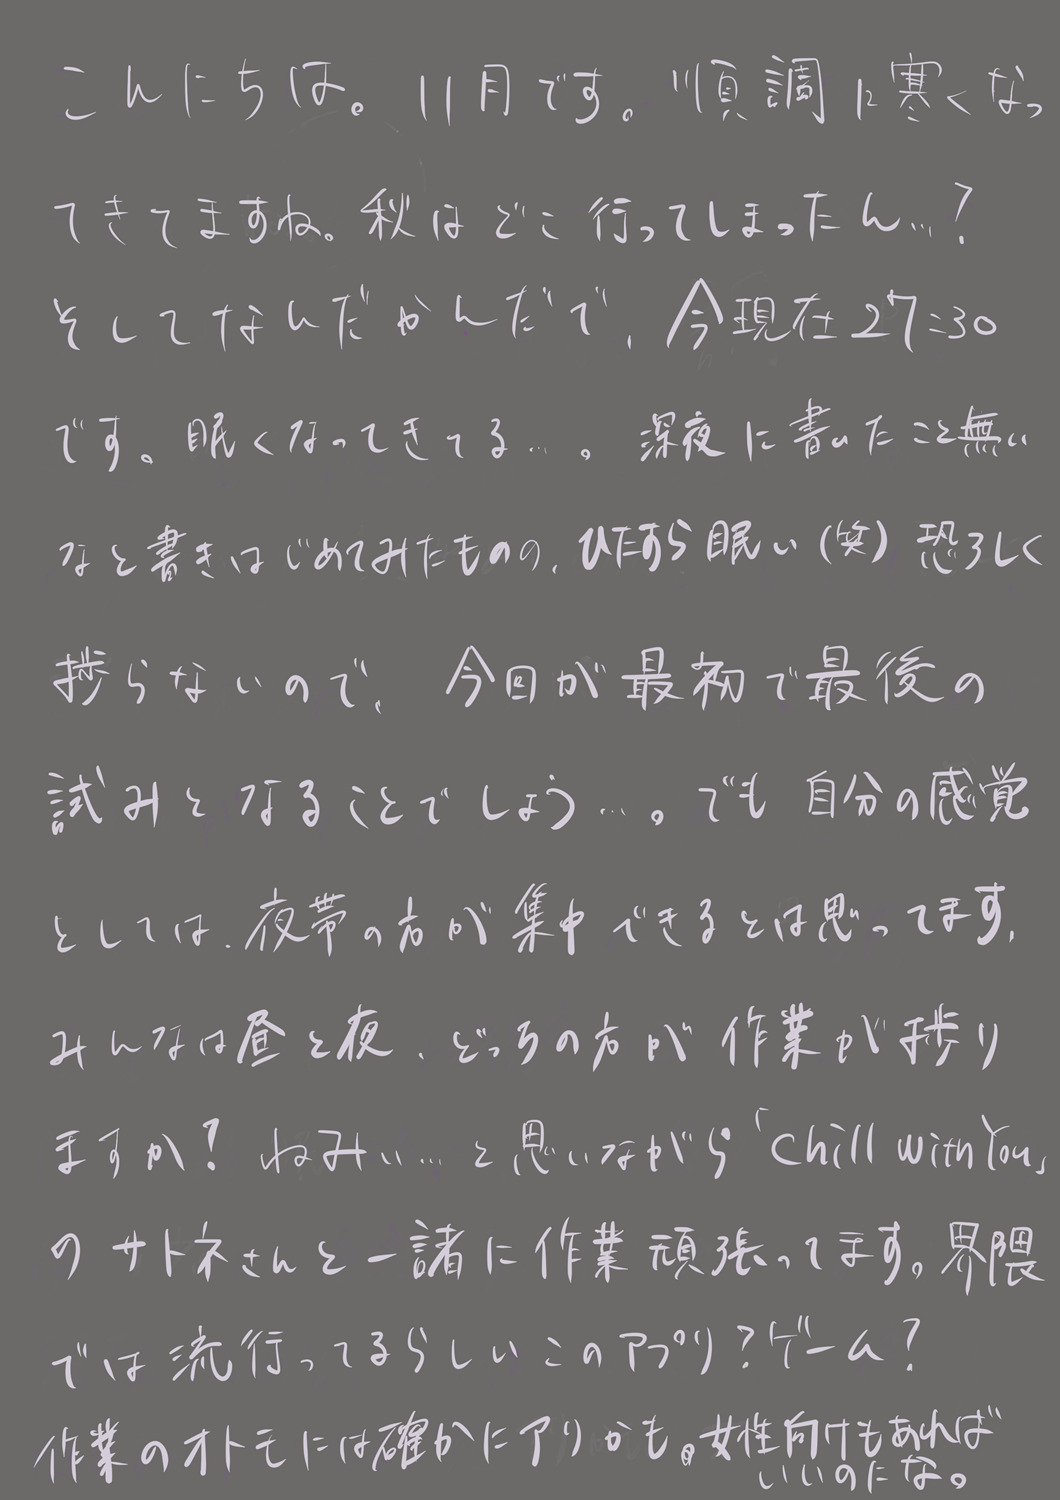 こんにちは。11月です。順調に寒くなっ
てきてますね。秋はどこ行ってしまったん…?
そしてなんだかんだで、今現在27:30
です。眠くなってきてる…。深夜に書いたこと無い
なと書きはじめてみたものの、ひたすら眠い(笑)恐ろしく
捗らないので、今回が最初で最後の
試みとなることでしょう…。でも自分の感覚
としては、夜帯の方が集中できるとは思ってます、
みんなは昼と夜、どっちの方が作業が捗り
ますか?ねみぃ…と思いながら「Chill With You」
のサトネさんと一諸に作業頑張ってます。界隈
では流行ってるらしいこのアプリ?ゲーム?
作業のオトモには確かにアリかも。女性向けもあれば
いいのにな。